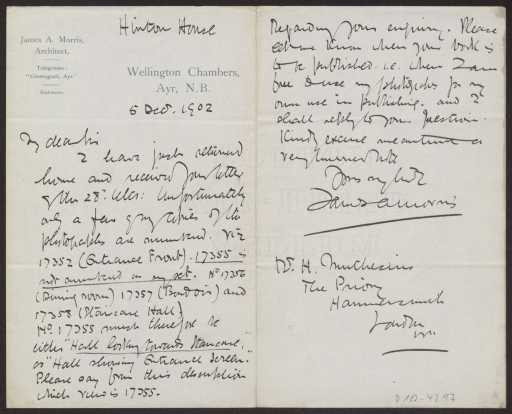 James A. Morris,
Architect.
Telegrams:
Hinton House
Wellington Chambers,
Ayr, N.B.
5 Dec. 1902
My dear Sir
I have just returned
home and received your letter
of the 28th Ulto: Unfortunately
only a few of my copies of the
photographs are numbered. Viz
17352 (Entrance Front). 17355 is
not numbered on my set. No 17356
(Dining room) 17357 (Boudoir) and
17358 (Staircase Hall)
No. 17355 must therefore be
either "Hall looking towards Staircase,"
or "Hall showing Entrance Screen."
Please say from this description
which view is 17355.
Regarding your enquiry. Please
let me know when your book is
to be published. i.e. when I am
free to use my photographs for my
own use in publishing. and I
shall reply to your question.
Kindly excuse meantime a
very hurried note
Yours truly
James A Morris
H. Muthesius
The Priory
Hammersmith
London
D 102-4257